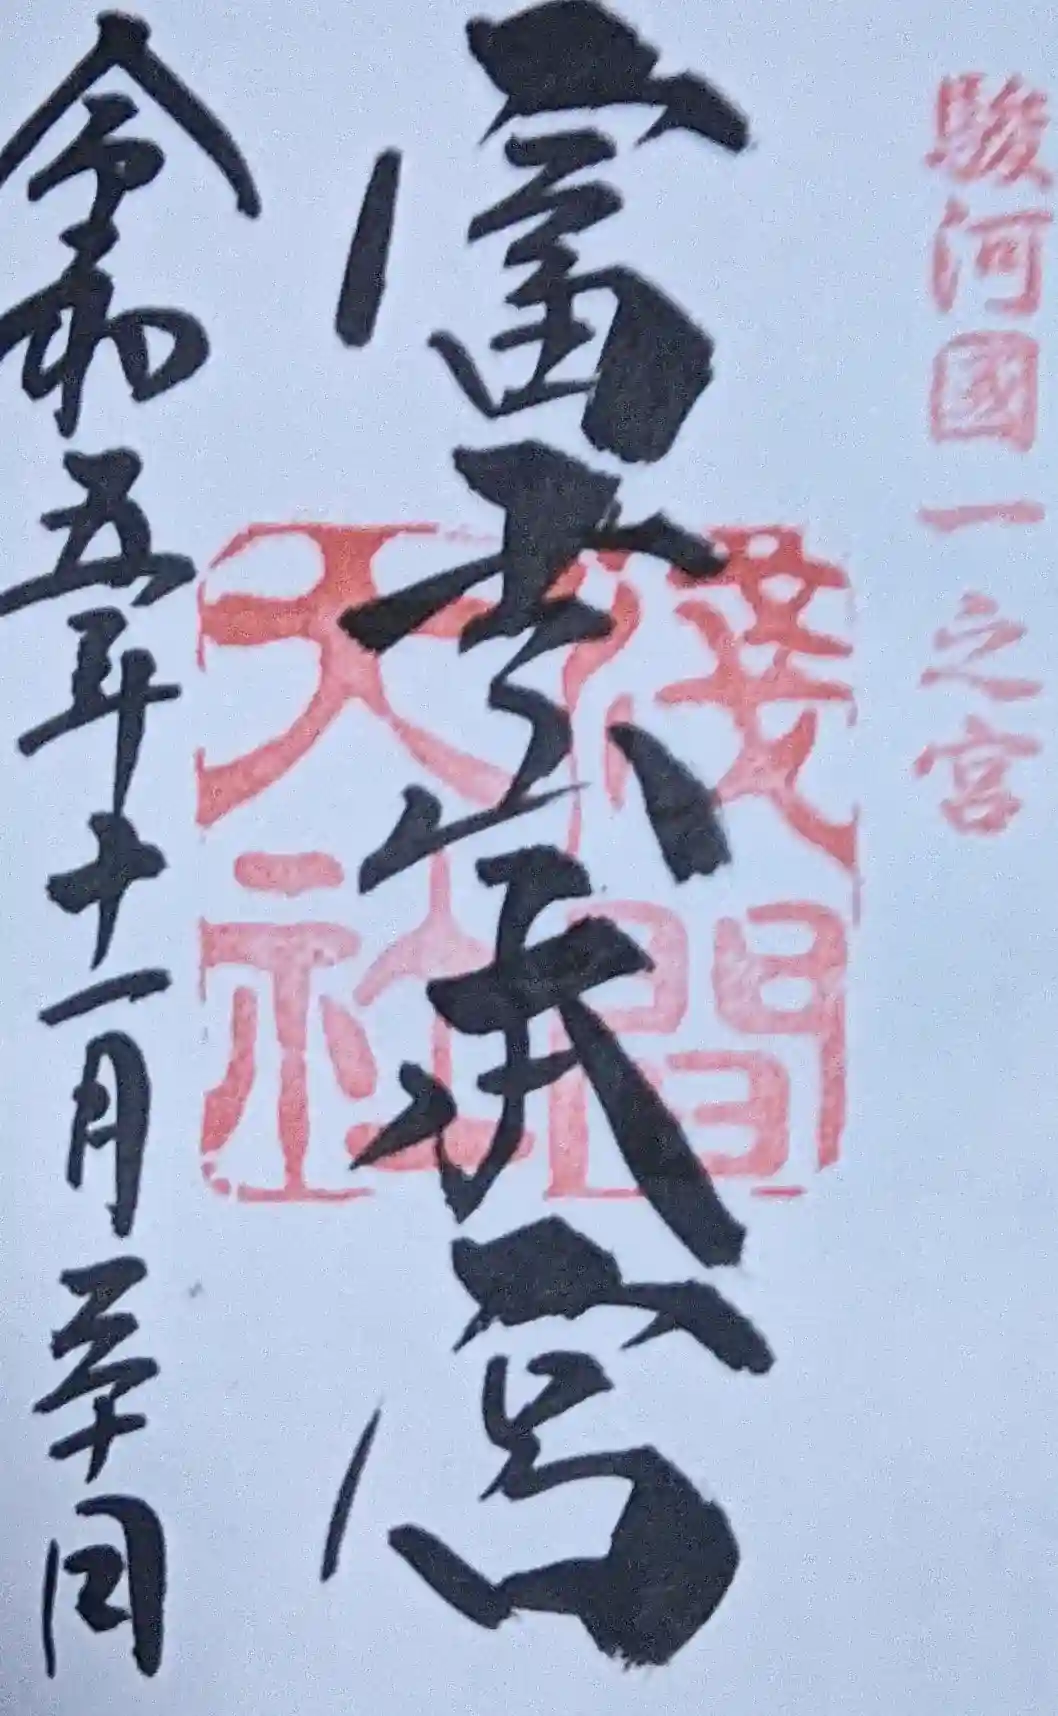 駿河國一之宮
富士山本宮
淺間大社
令和五年十一月三十日